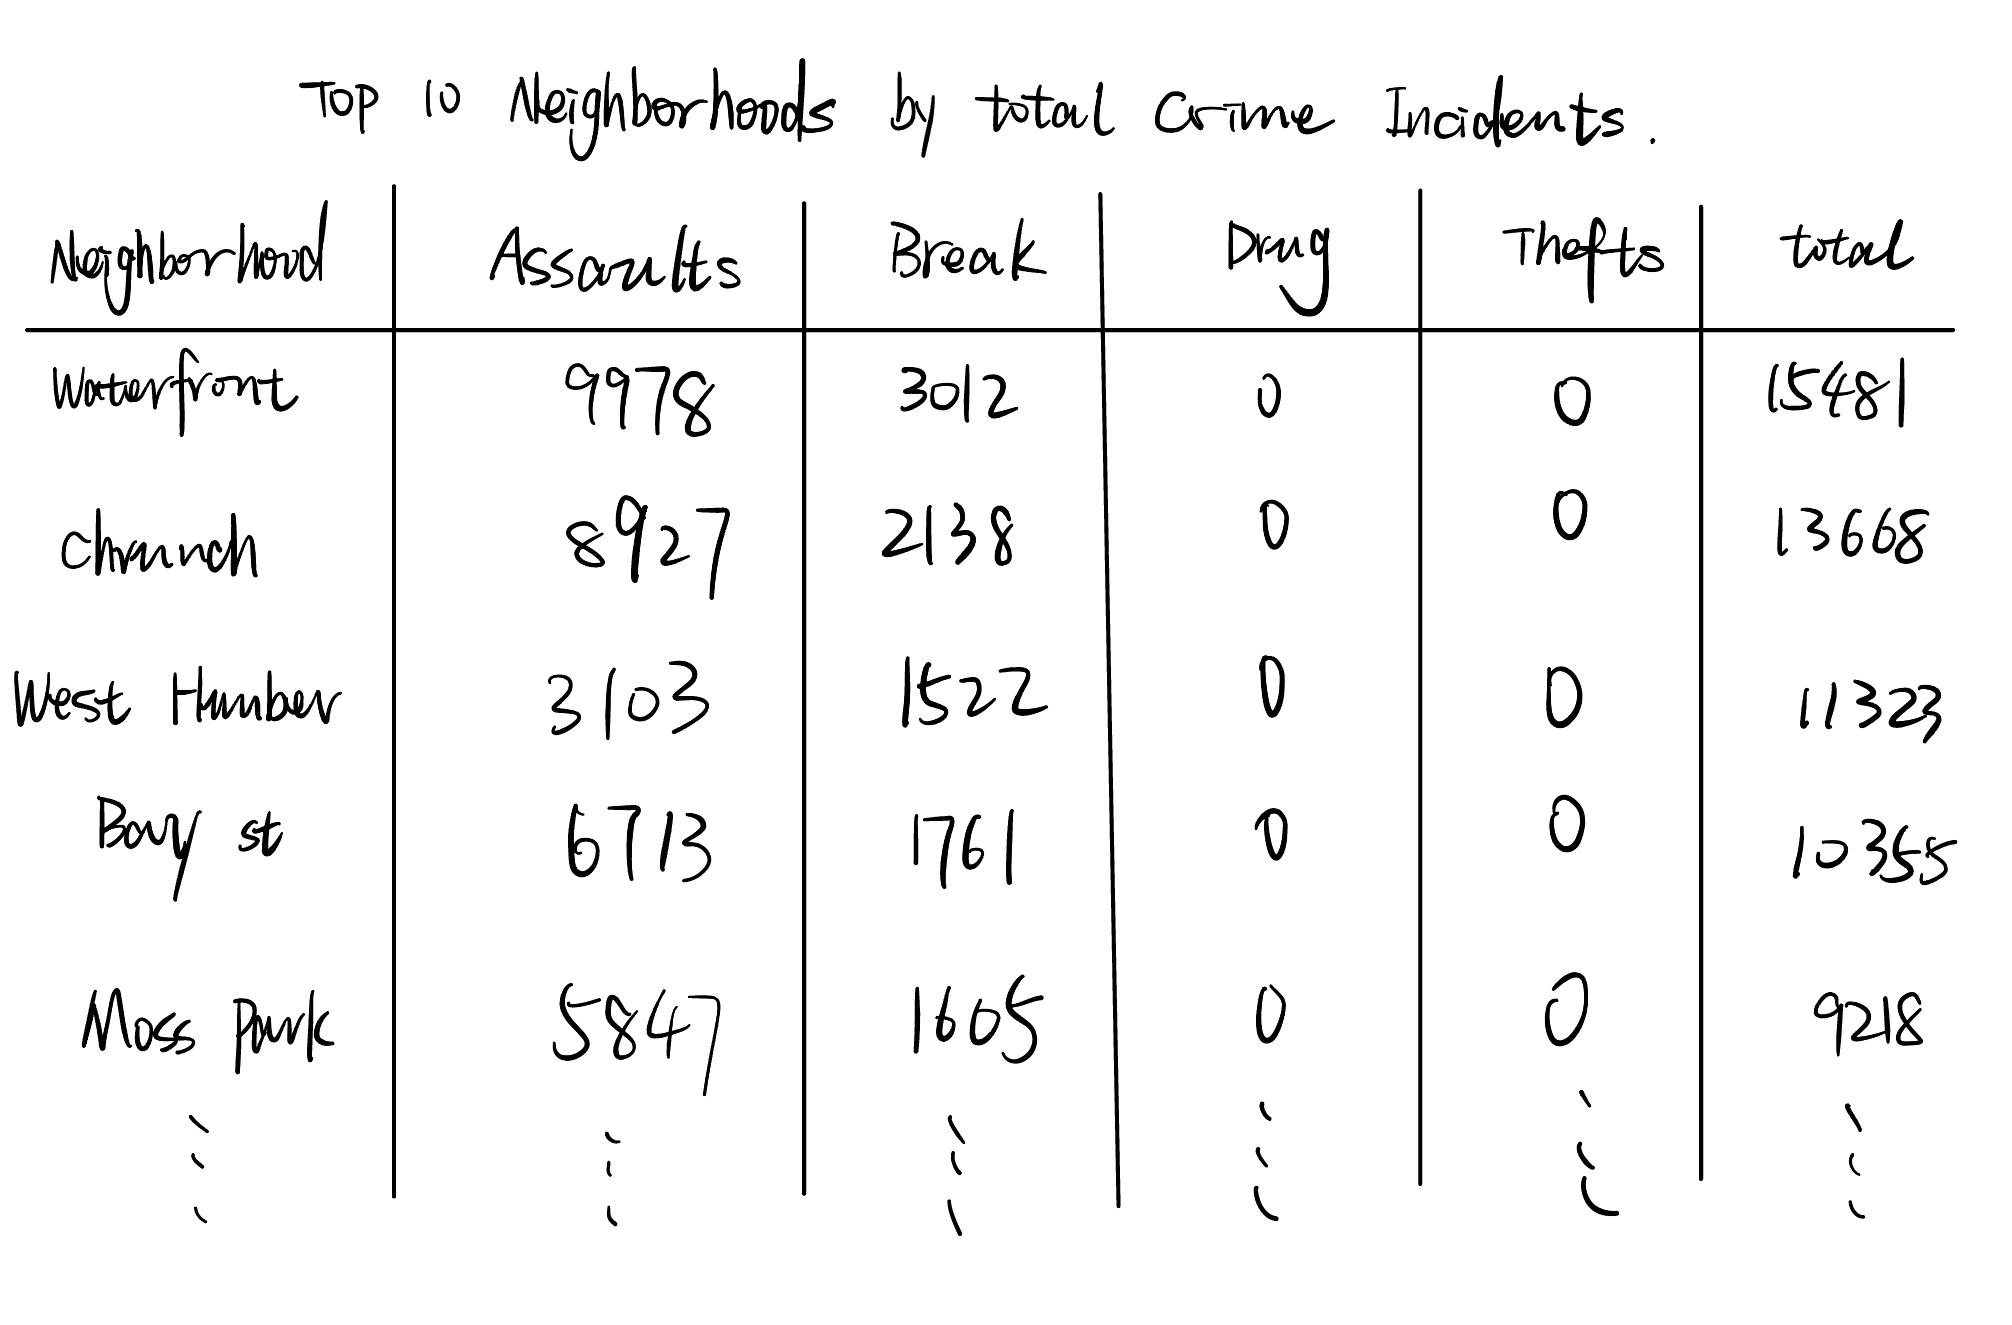 Top 10 Neighborhoods by total Crime Incidents.
Neighborhood Assaults Break Drug Thefts total
Waterfront 9978 3012 0 0 15481
8927 2138 0 0 13668
West Humber 3103 1522 0 0 11323
Bay st 6713 1761 0 0 10355
Moss Park 5847 1605 0 0 9218